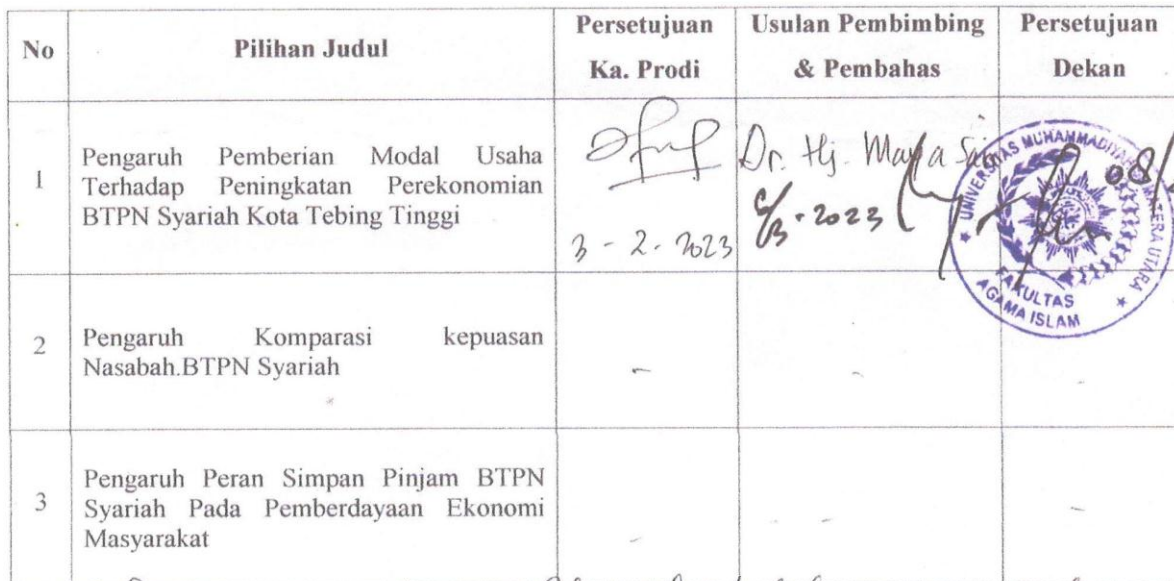 No
Pilihan Judul
Persetujuan
Ka. Prodi
Usulan Pembimbing
& Pembahas
Persetujuan
Dekan
1
Pengaruh Pemberian Modal Usaha
Terhadap Peningkatan Perekonomian
BTPN Syariah Kota Tebing Tinggi
3 - 2 - 2023
Dr. Hj. Maya
2023
08/
UNIVERSITAS MUHAMMADIYAH SUMATERA UTARA
FAKULTAS
AGAMA ISLAM
2
Pengaruh Komparasi kepuasan
Nasabah.BTPN Syariah
-
-
-
3
Pengaruh Peran Simpan Pinjam BTPN
Syariah Pada Pemberdayaan Ekonomi
Masyarakat
-
-
-